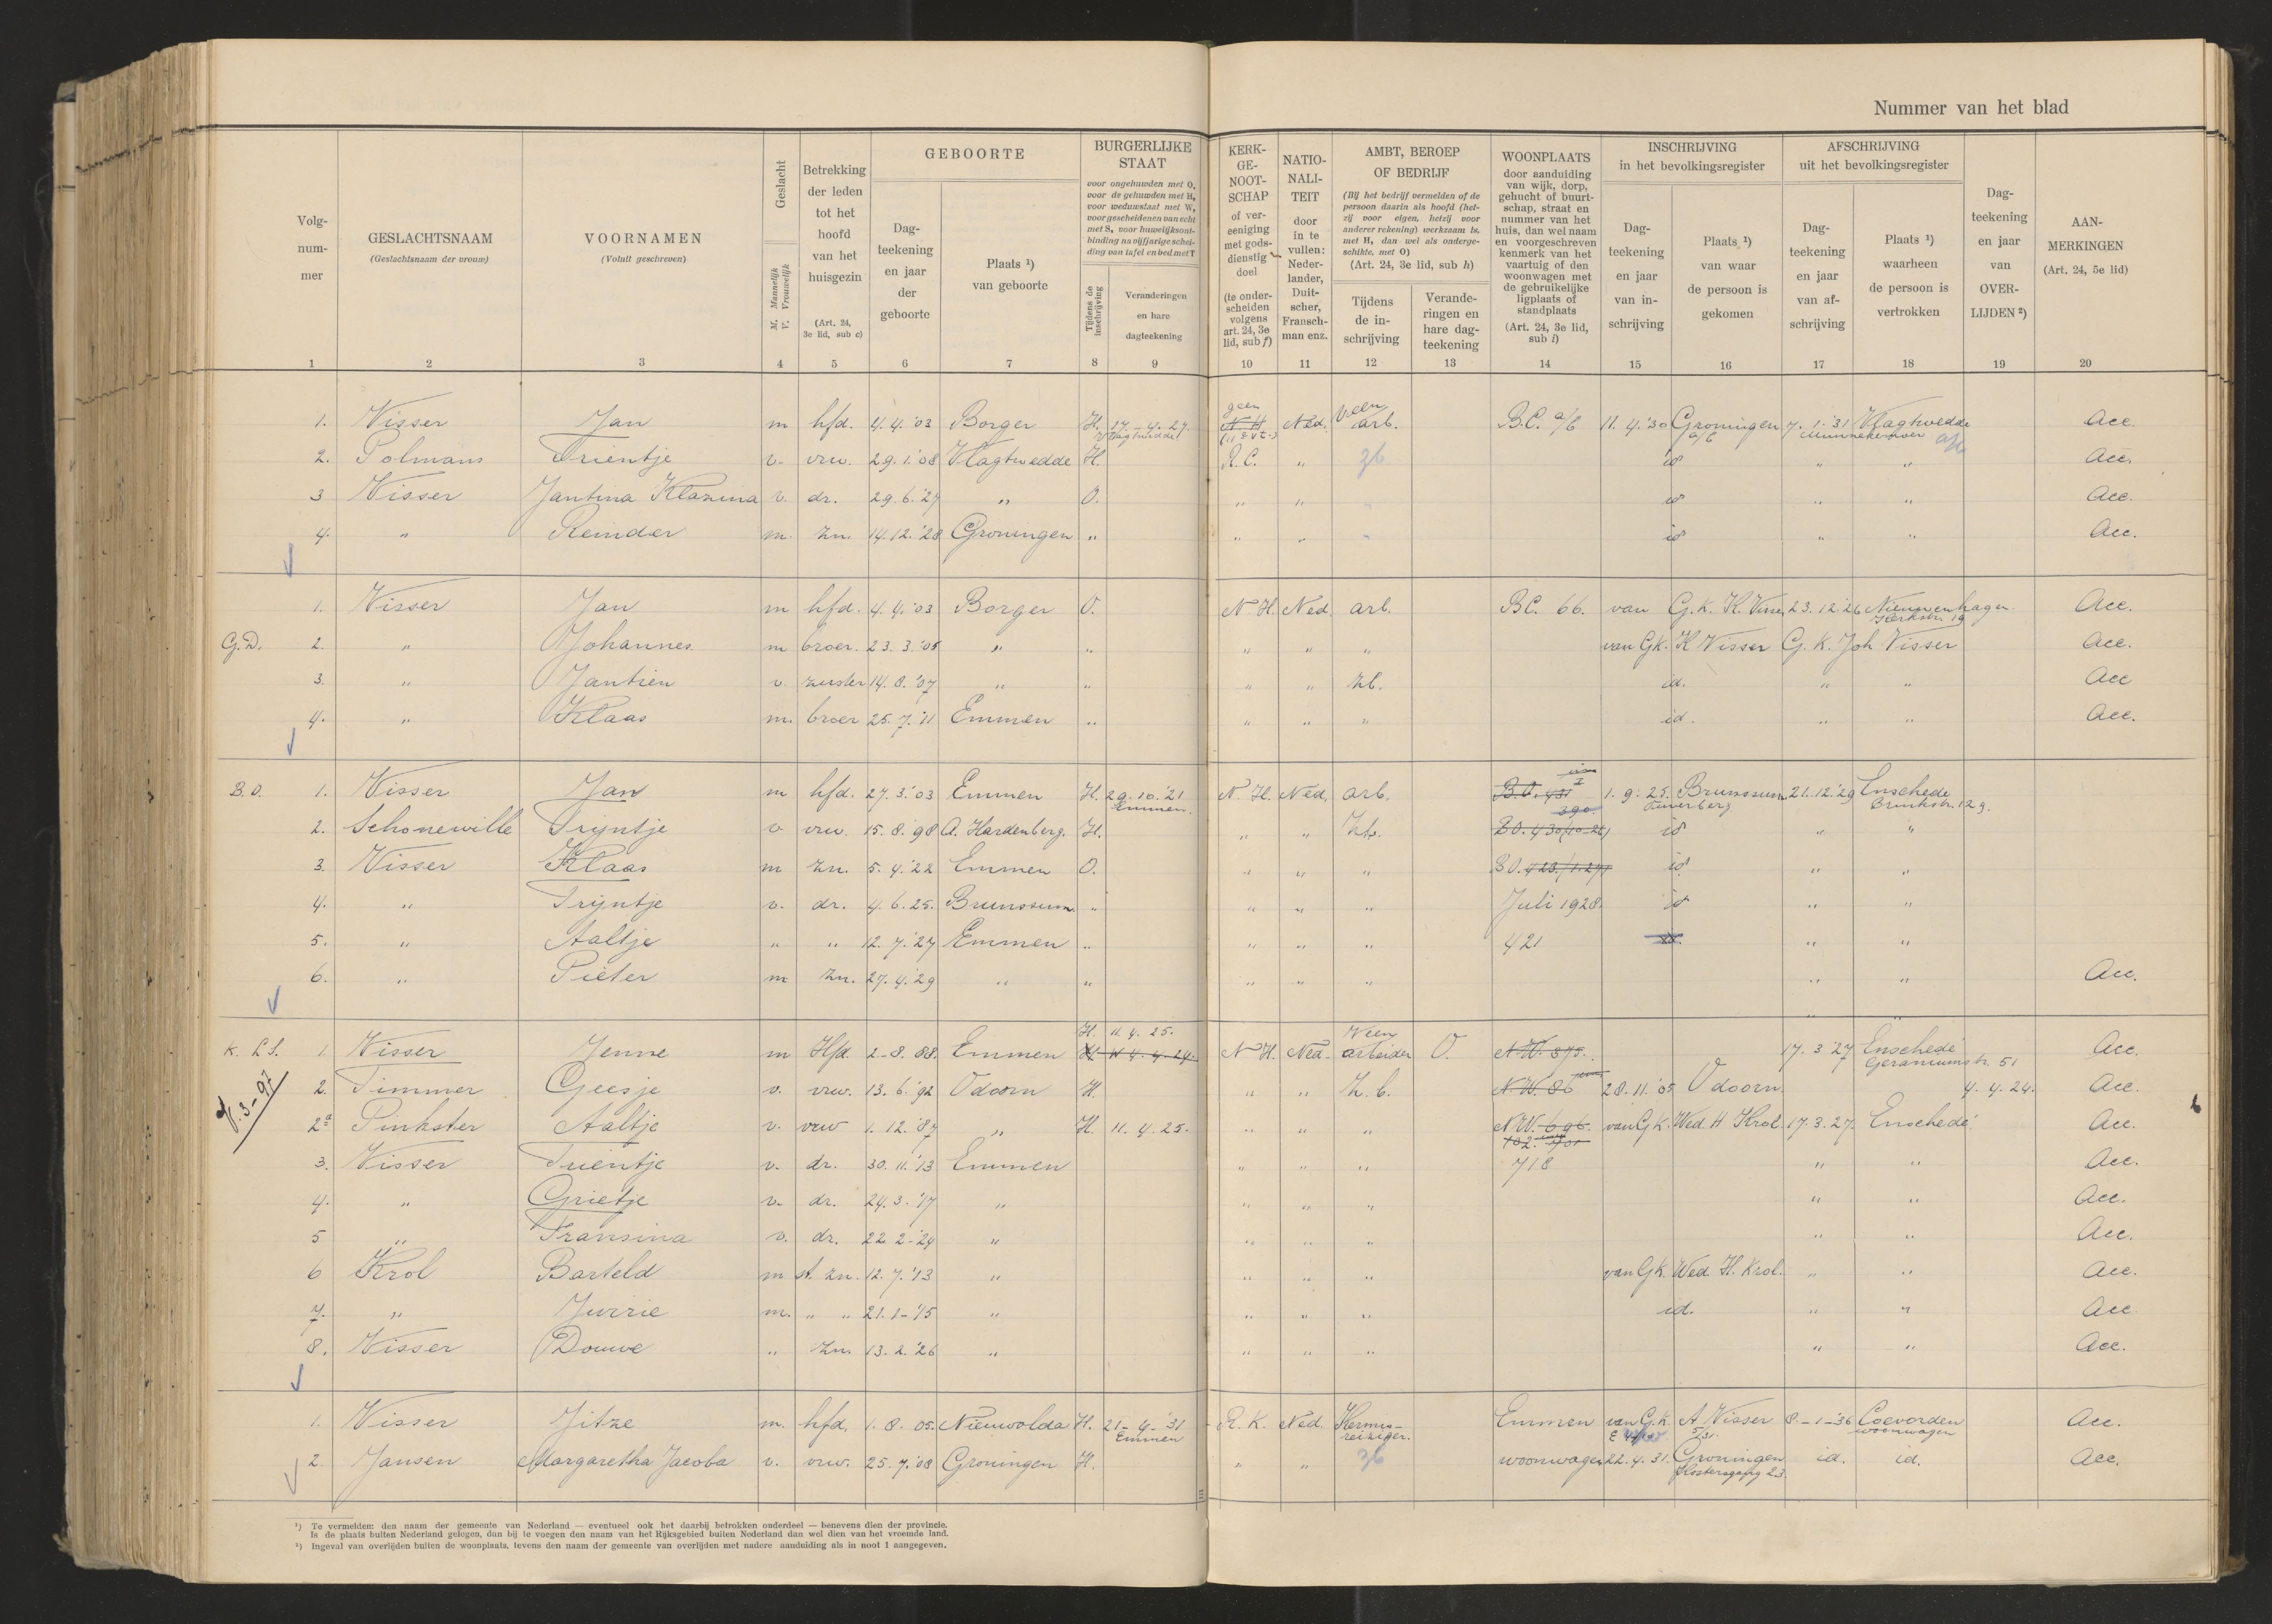 Nummer van het blad
Volg-
num-
mer
GESLACHTSNAAM
(Geslachtsnaam der vrouw)
VOORNAMEN
(Voluit geschreven)
Geslacht
M. Mannelijk
V. Vrouwelijk
Betrekking
der leden
tot het
hoofd
van het
huisgezin
(Art. 24,
3e lid, sub c)
GEBOORTE
Dag-
teekening
en jaar
der
geboorte
Plaats ¹)
van geboorte
BURGERLIJKE
STAAT
voor ongehuwden met O,
voor de gehuwden met H,
voor weduwstaat met W,
voor gescheidenen van echt
met S, voor huwelijksont-
binding na vijfjarige schei-
ding van tafel en bed met T
Tijdens de
inschrijving
Veranderingen
en hare
dagteekening
KERK-
GE-
NOOT-
SCHAP
of ver-
eeniging
met gods-
dienstig
doel
(te onder-
scheiden
volgens
art. 24, 3e
lid, sub f)
NATIO-
NALI-
TEIT
door
in te
vullen:
Neder-
lander,
Duit-
scher,
Fransch-
man enz.
AMBT, BEROEP
OF BEDRIJF
(Bij het bedrijf vermelden of de
persoon daarin als hoofd (het-
zij voor eigen, hetzij voor
anderer rekening) werkzaam is,
met H, dan wel als onderge-
schikte, met O)
(Art. 24, 3e lid, sub h)
Tijdens
de in-
schrijving
Verande-
ringen en
hare dag-
teekening
WOONPLAATS
door aanduiding
van wijk, dorp,
gehucht of buurt-
schap, straat en
nummer van het
huis, dan wel naam
en voorgeschreven
kenmerk van het
vaartuig of den
woonwagen met
de gebruikelijke
ligplaats of
standplaats
(Art. 24, 3e lid,
sub i)
INSCHRIJVING
in het bevolkingsregister
Dag-
teekening
en jaar
van in-
schrijving
Plaats ¹)
van waar
de persoon is
gekomen
AFSCHRIJVING
uit het bevolkingsregister
Dag-
teekening
en jaar
van af-
schrijving
Plaats ¹)
waarheen
de persoon is
vertrokken
Dag-
teekening
en jaar
van
OVER-
LIJDEN ²)
AAN-
MERKINGEN
(Art. 24, 5e lid)
1 2 3 4 5 6 7 8 9 10 11 12 13 14 15 16 17 18 19 20
1. Visser Jan m hfd. 4.4.'03 Borger H. 17-4.27. Vlagtwedde geen N H Ned. Veen arb. B.C. a/b 11.4.'30 Groningen a/b 7.1.'31 Vlagtwedde Acc.
2. Polmans Trientje v. vrw. 29.1.'08 Vlagtwedde H. R.C. " id " " Acc.
3 Visser Jantina Klazina v. dr. 29.6.'27 " O. " " id " " Acc.
4. " Reinder m. zn. 14.12.'28 Groningen " " " id " " Acc.
1. Visser Jan m hfd. 4.4.'03 Borger O. N.H. Ned. arb. B.C. 66. van G.K. K. Visser 23.12.'26 Nieuwenhagen Kerkstr. 19 Acc.
G.D. 2. " Johannes m broer. 23.3.'05 " " " " " van G.K. K Visser G.K. Joh Visser Acc.
3. " Jantien v. zuster 14.8.'07 " " " " zb. id. " " Acc
4. " Klaas m. broer 25.7.'11 Emmen " " " " id. " " Acc.
B.O. 1. Visser Jan m hfd. 27.3.'03 Emmen H. 29.10.'21 Emmen. N.H. Ned. arb. B.O. 431 390 1.9.'25. Brunssum 21.12.'29 Enschede Brinkstr. 129.
2. Schonewille Trijntje v. vrw. 15.8.'98 A. Hardenberg. H. " " zb. B.O. 430/10-26 id " "
3. Visser Klaas m zn. 5.4.'22 Emmen O. " " " B.O. 423/1.27 id " "
4. " Trijntje v. dr. 4.6.25. Brunssum. " " " " Juli 1928. id " "
5. " Aaltje " " 12.7.'27 Emmen " " " " 421 id. " "
6. " Pieter m zn. 27.4.'29 " " " " " " " Acc.
K. L.S. 1. Visser Jenne m Hfd. 2-8.88. Emmen H. 11.4.25. H W 4.4.24. N.H. Ned. Veen arbeider O. N.W. 875. 17.3'27 Enschede Geraniumstr. 51 Acc.
2. Timmer Geesje v. vrw. 13.6.'92 Odoorn H. " " z.b. N.W. 86 28.11.'05 Odoorn. 4.4.24. Acc.
2ª Pinkster Aaltje v. vrw 1.12.'87 " H. 11.4.25. " " " N.W. 696. 702. van G.K. Wed H Krol. 17.3.27. Enschede Acc.
3. Visser Trientje v. dr. 30.11.'13 Emmen " " " 718 " " Acc.
4. " Grietje v. dr. 24.3.'17 " " " " " " Acc.
5 " Fransina v. dr. 22 2-'24 " " " " " " Acc.
6 Krol Barteld m st. zn. 12.7.'13 " " " " van G.K. Wed H. Krol. " " Acc.
7. " Jurrie m. " " 21.1-'15 " " " " id. " " Acc
8. Visser Douwe " zn. 13.2.'26 " " " " " " Acc.
1. Visser Jitze m. hfd. 1.8.05. Nieuwolda H. 21-4-'31 Emmen R.K. Ned. Kermis-reiziger. Emmen van G.K. A Visser 8.-1-'36 Coevorden woonwagen Acc.
2. Jansen Margaretha Jacoba v. vrw. 25.7.'08 Groningen H. " " woonwagen 22.4.31. Groningen Kostersgang 23. id. id. Acc.
¹) Te vermelden: den naam der gemeente van Nederland — eventueel ook het daarbij betrokken onderdeel — benevens dien der provincie.
Is de plaats buiten Nederland gelegen, dan bij te voegen den naam van het Rijksgebied buiten Nederland dan wel dien van het vreemde land.
²) Ingeval van overlijden buiten de woonplaats, tevens den naam der gemeente van overlijden met nadere aanduiding als in noot 1 aangegeven.